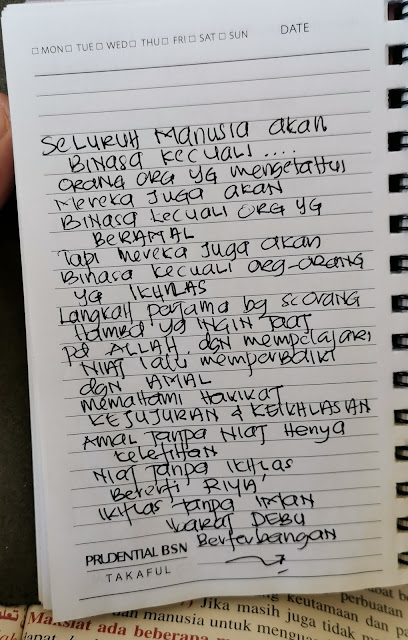 □ MON □ TUE □ WED □ THU □ FRI □ SAT □ SUN DATE
SELURUH MANUSIA AKAN
BINASA KECUALI ....
ORANG ORG YG MENGETAHUI
MEREKA JUGA AKAN
BINASA KECUALI ORG YG
BERAMAL
TAPI MEREKA JUGA AKAN
BINASA KECUALI ORG-ORANG
YG IKHLAS
LANGKAH PERTAMA BG SEORANG
HAMBA YG INGIN TAAT
PD ALLAH, DGN MEMPELAJARI
NIAT LALU MEMPERBAIKI
DGN AMAL
MEMAHAMI HAKIKAT
KEJUJURAN & KEIKHLASAN
AMAL TANPA NIAT HENYA
KELETIHAN
NIAT TANPA IKHLAS
BERERTI RIYA'
IKHLAS TANPA IMAN
IBARAT DEBU
BERTERBANGAN
PRUDENTIAL BSN
TAKAFUL
Maksiat ada beberapa
2) Jika masih juga tidak
dan manusia untuk
keutamaan dan